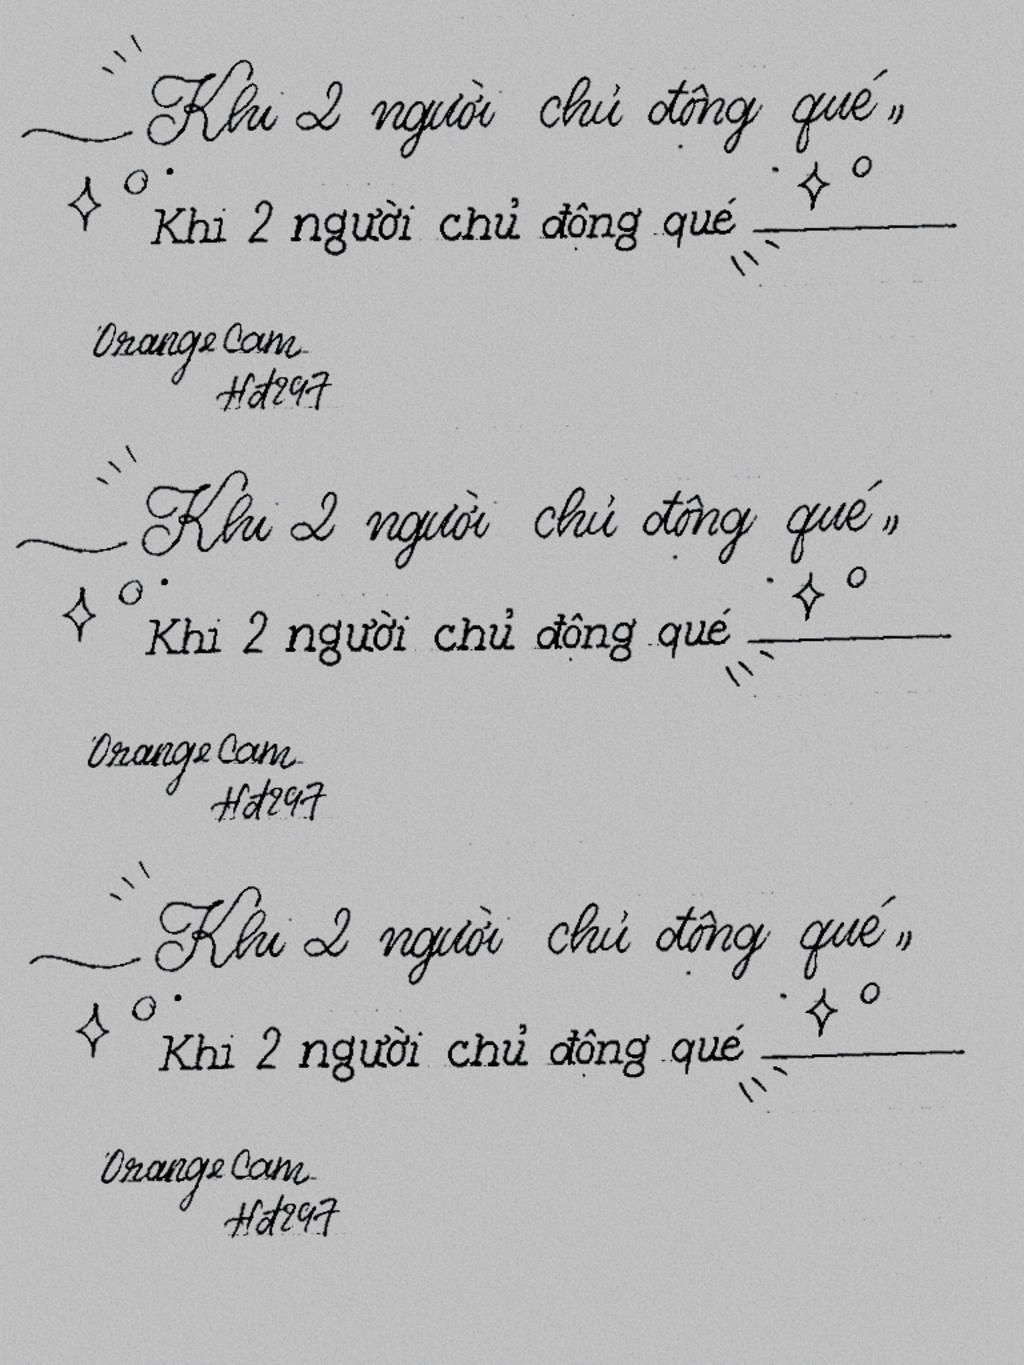 Khi 2 người chủ động qué,,
Khi 2 người chủ động qué
OrangeCam
Hđ297
Khi 2 người chủ động qué,,
Khi 2 người chủ động qué
OrangeCam
Hđ297
Khi 2 người chủ động qué,,
Khi 2 người chủ động qué
OrangeCam
Hđ297